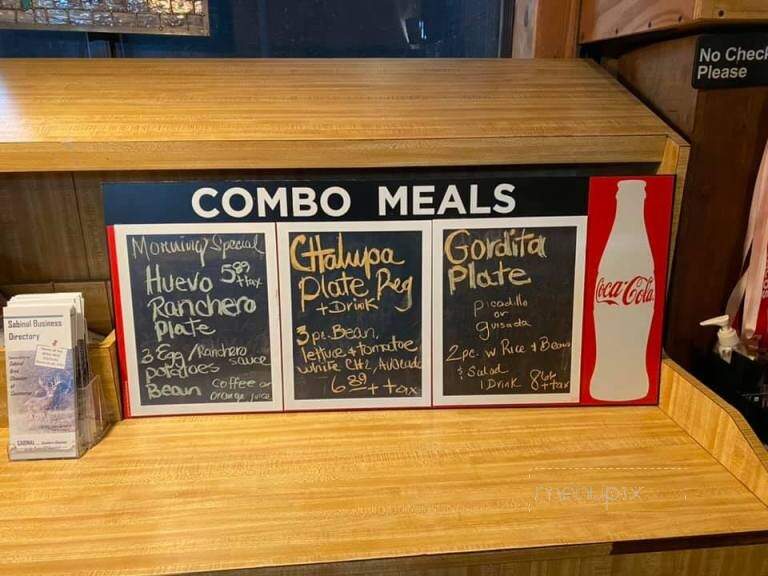 No Check
Please
COMBO MEALS
Morning Special
Huevo 5.89
+tax
Ranchero
Plate
3 Egg/Ranchero
sauce
potatoes
Bean
Coffee or
Orange Juice
CHalupa
Plate Reg
+ Drink
3 pc. Bean,
lettuce + tomatoe
white CHZ, AVOcado
6.89 + tax
Gordita
Plate
picadillo
or
guisada
2 pc. w Rice + Beans
& Salad
1 Drink
+ tax
Coca-Cola
Sabinal Business
Directory
SABINAL
menupix